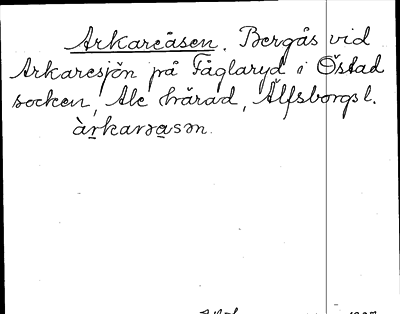 Arkareåsen. Bergås vid
Arkaresjön på Fåglaryd i Östad
socken, Ale härad, Älfsborgs l.
àrkarɘa̠sɘn.